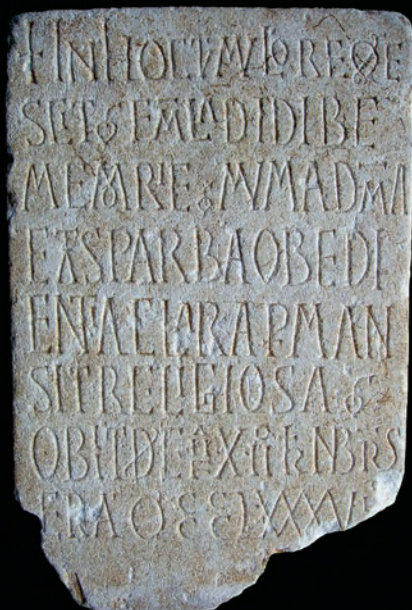 IN HOC TVMVLO REQE
SET FAMLA DI DIBE
MEMORIE MVMADMA
EXSPARBA OBEDI
ENTIA CLARA PMAN
SIT RELIGIOSA
OBIIT DIE XII K NBRS
ERA